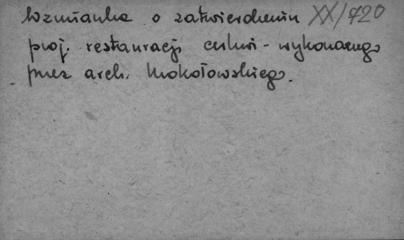 Wzmianka o zatwierdzeniu XX/720
proj. restauracji cerkwi - wykonanego
przez arch. Mokołowskiego.